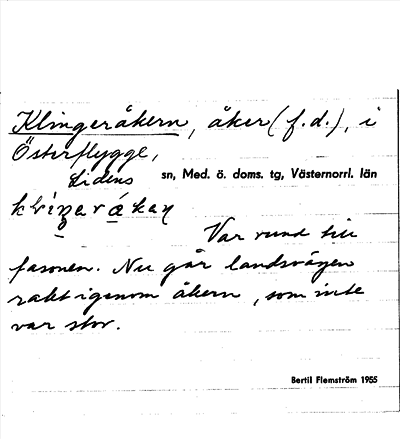 Klingeråkern, åker (f.d.), i
Österflygge,
Lidens sn, Med. ö. doms. tg, Västernorrl. län
Var rund till
fasonen. Nu går landsvägen
rakt igenom åkern, som inte
var stor.
Bertil Flemström 1955